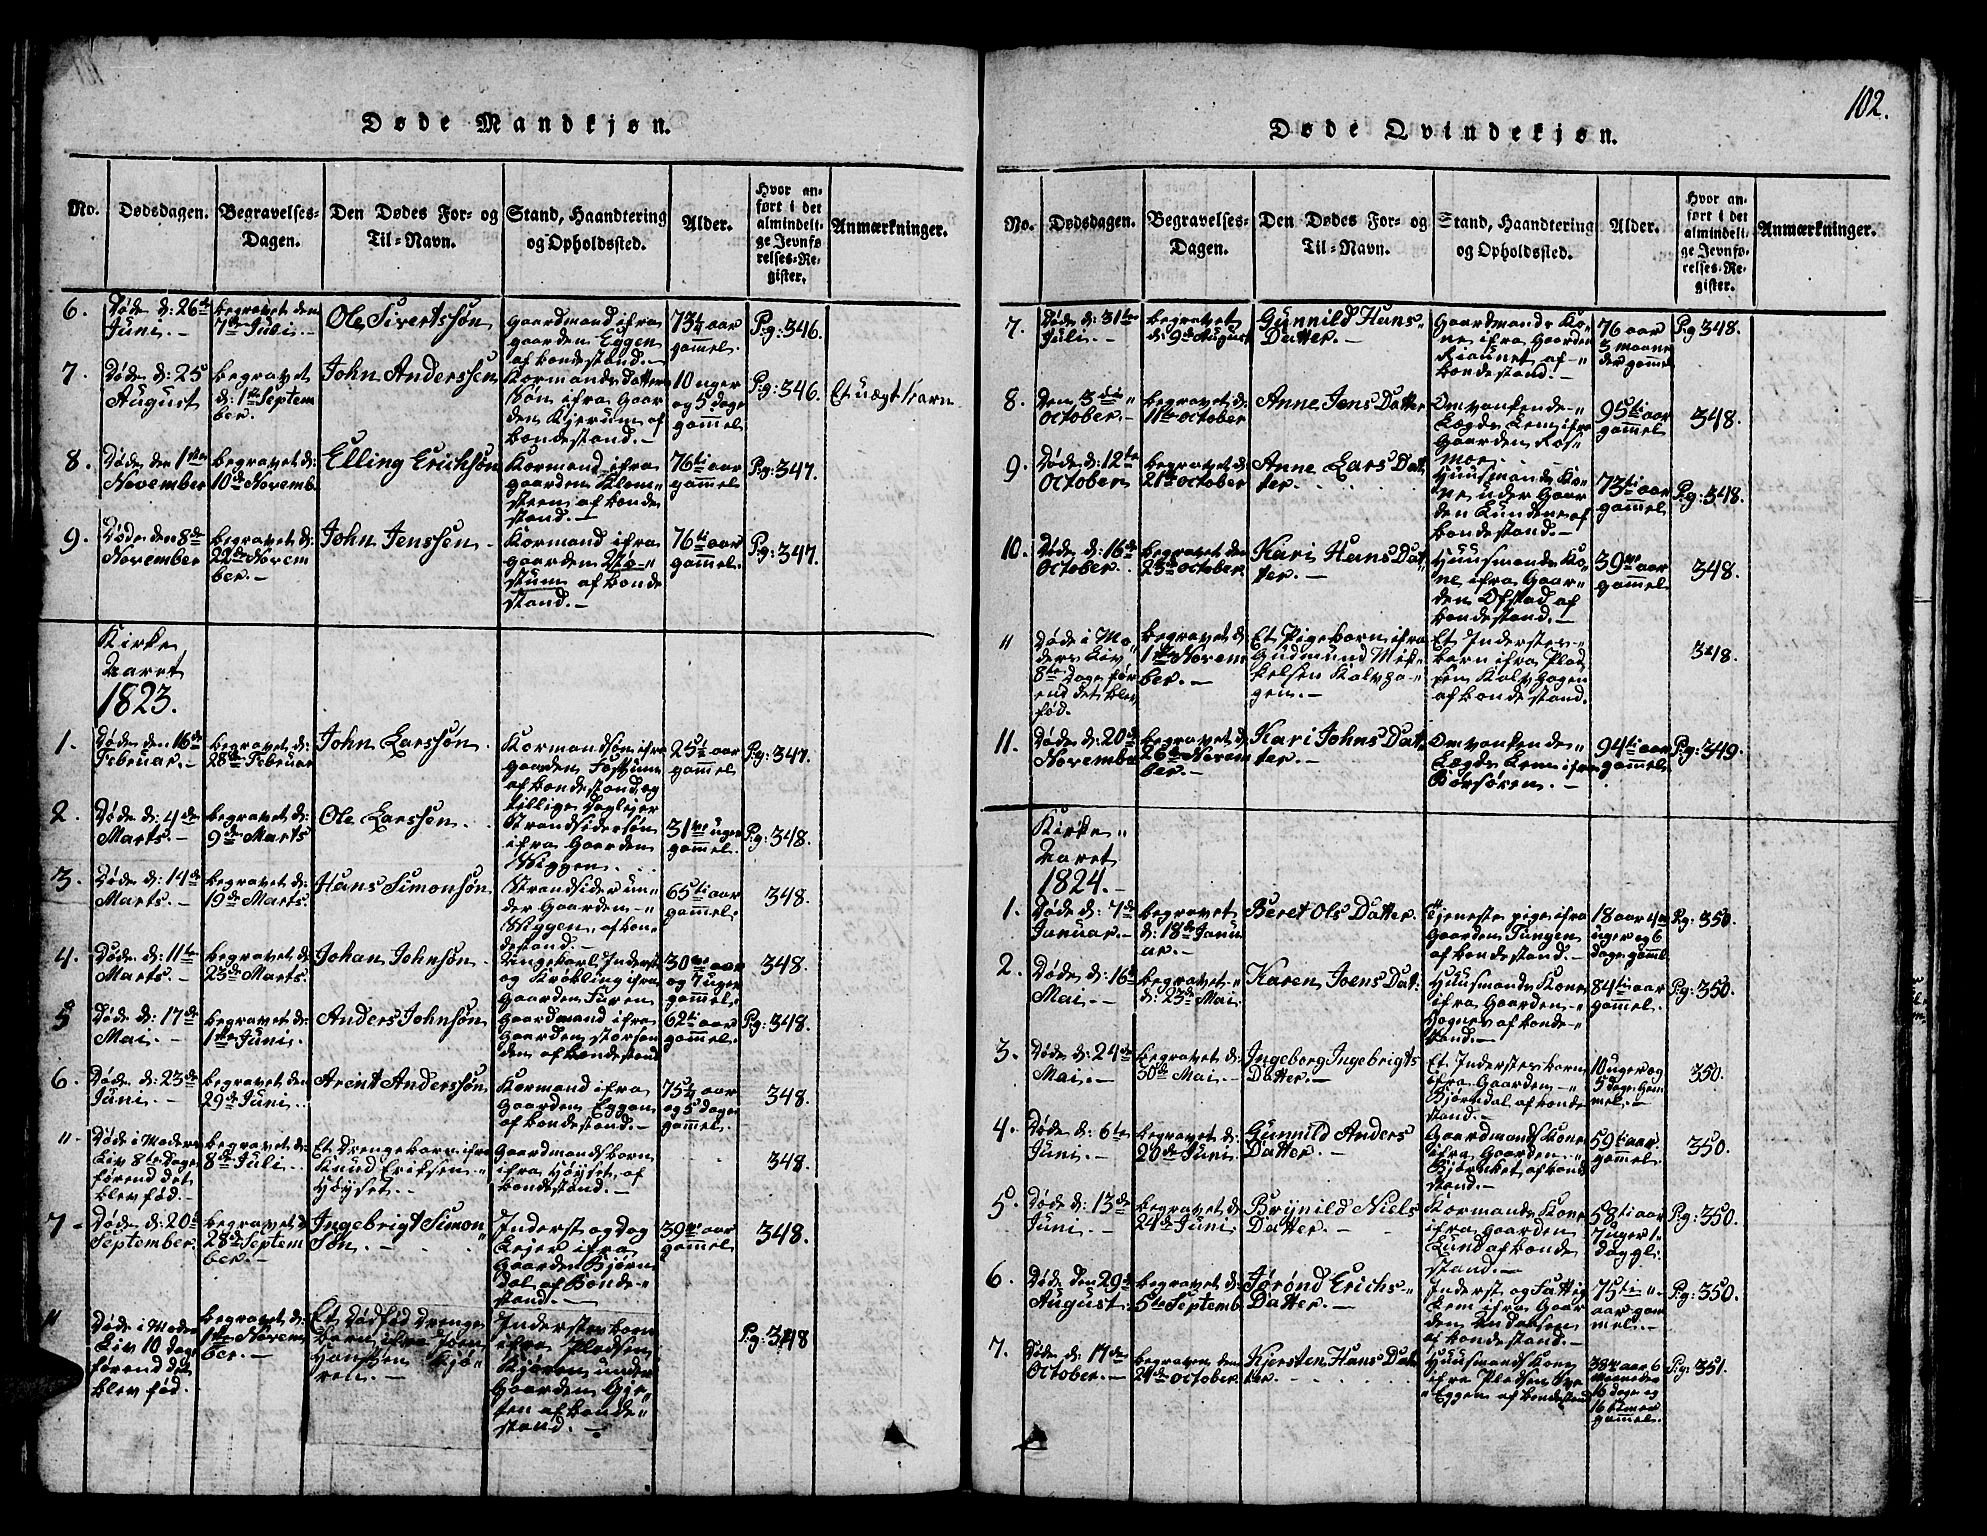 102.
Døde Mandkjøn.
No.
Dødsdagen.
Begravelses-
Dagen.
Den Dødes For- og
Til-Navn.
Stand, Haandtering
og Opholdssted.
Alder.
Hvor an-
ført i det
almindeli-
ge Jevnfø
relses-Re-
gister.
Anmærkninger.
6.
Døde d: 26de
Juni. -
begravet den
7de Juli. -
Ole Sivertssøn
Gaardmand ifra
gaarden Eggen
af bondestand. -
73 1/4 aar
gammel.
Pg: 346.
7.
Døde d: 25
August
begravet
d: 1ste Septem
ber. -
John Anderssen
Kormands datters
Søn ifra Gaar
den Kjerum af
bondestand. -
10 uger
og 5 dage
gammel.
Pg: 346.
Et uægt barn
8.
Døde den 1ste
November
begravet d:
10de Novemb.
Elling Erichsøn
Kormand ifra
gaarden Klom-
steen af bonde
stand. -
76ti aar
gammel
Pg: 347.
9.
Døde den 8de
November
begravet d:
22de Novem
ber. -
John Jenssøn -
Kormand ifra
gaarden Stø-
stum af bonde
stand. -
76ti aar
gammel.
Pg: 347.
Kirke
Aaret
1823.
1.
Døde den 16de
Februar. -
begravet d:
28de Februar
John Larssøn.
Kormandsøn ifra
gaarden Fossum
af bondestand og
tillige Daglejer
25 1/2 aar
gammel
Pg: 347.
2.
Døde d: 4de
Marts. -
begravet d:
9de Marts
Ole Larssøn. .
Strandsidersøn
ifra Gaarden
Wiggen. . . .
31me uger
gammel.
Pg: 348.
3.
Døde d: 14de
Marts. -
begravet d:
19de Marts.
Hans Simonsøn
Strandsider un-
der Gaarden -"
Wiggen, af bon-
destand. -
65ti aar
gammel.
348.
4.
Døde d: 11te
Marts. -
begravet d:
23de Marts.
Johan Johnsøn.
Ungekarl, Inderst
og Krøbling ifra
Gaarden Furen
30me aar
og 7 uger
gammel.
348.
5
Døde d: 17de
Mai. -
begravet d:
1ste Juni.
Anders Johnsøn
Gaardmand ifra
Gaarden Storsan
den af bondestand
62ti aar
gammel.
Pg: 348.
6.
Døde d: 23de
Juni. -
begravet den
29de Juni. .
Arent Anderssøn
Kormand ifra
Gaarden Eggen
af bondestand. -
75 1/4 aar
og 5 dage
gammel.
348.
"
Døde i Moders
Liv 8te Dage
førend det
blev fød. -
begravet d:
8de Juli.
Et Drengebarn ifra
Knud Eriksen
Høyset. -
Gaardmandsbarn
ifra Høyset, af
bondestand. -
348.
7 -
Døde d: 20de
September.
begravet d
28de Septem
ber. -
Ingebrigt Simon
søn. -
Inderst og dag
Lejer ifra
Gaarden Bjørn
dal af Bonde-"
stand. -
39ve aar
gammel
348.
"
Døde i Moders
Liv 10 dage
førend det
blev fød.
begravet d:
1ste Novem
ber. -
Et dødfød Drenge
barn ifra John
Hanssen Kjø-
ren. -
Inderstes barn
ifra Pladsen
Kjøren under
Gaarden Gje-
ten af bonde-"
stand. -
Pg: 348
Døde Qvindekjøn.
No.
Dødsdagen.
Begravelses-
Dagen.
Den Dødes For- og
Til-Navn.
Stand, Haandtering
og Opholdssted.
Alder.
Hvor an-
ført i det
almindeli-
ge Jevnfø-
relses-Re-
gister.
Anmærkninger.
7.
Døde d: 31te
Juli. -
begravet
d: 9de August
Gunnild Hans-"
Datter. -
Gaardmands Ko-
ne ifra Gaarden
Riaunet af -"
bondestand. -
76 aar
3 maane
der gammel
Pg 348.
8.
Den 3die "
October. -
begravet d:
11te October
Anne Jens Datter
Omvankende -"
Lægds Lem ifra
Gaarden Ros-
moe.
95ti aar
gammel
348.
9.
Døde d: 12te
October
begravet d:
21de October
Anne Lars Dat
ter.
Huusmands Ko-
ne under Gaar
den Lundene af
bondestand. -
73ti aar
gammel
Pg: 348.
10.
Døde d: 16de
October.
begravet den
23de October
Kari Hans Dat
ter. -
Huusmands Ko-
ne ifra Gaar-
den Ofstad af
bondestand. -
39ve aar
gammel
348.
"
Døde i Mo-
ders Liv
8te Dage før
end det blev
fød.
begravet d:
1ste Novem
ber. -
Et Pigebarn ifra
Gudmund Mik-
kelsen Kalvha-
gen. -
Et Inderstes-
barn ifra Plad
sen Kalvhagen
af bondestand.
348.
11.
Døde d: 20de
November
begravet d
26te Novem
ber. -
Kari Johns Dat
ter. -
Omvankende-"
Lægds Lem ifra
Børsøren. -
94ti aar
gammel
Pg: 349.
Kirke "
Aaret
1824. -
1.
Døde d: 7de
Januar. -
begravet
d: 18de Janu
ar. -
Beret Ols Datter.
Tjeneste pige ifra
Gaarden Tungen
af bondestand. -
18 aar 4re
uger og 6
dage gaml.
Pg: 350.
2.
Døde d: 16de
Mai. -
begravet -"
d: 23de Mai.
Karen Joens Dat.
Huusmands Kone
ifra Gaarden -"
Hogner af bonde-"
stand. -
84ti aar
gammel.
Pg: 350.
3.
Døde d: 24de
Mai. -
begravet d:
30de Mai. -
Ingeborg Ingebrigts
Datter. -
Et Inderstes barn
ifra Gaarden -"
Bjørndal af bonde
stand. -
10 uger og
5 dage gam
mel. -
350.
4.
Døde d: 6te
Juni. -
begravet d:
20de Juni.
Gunnild Anders
Datter. -
Gaardmands Kone
ifra Gaarden. -"
Bjørnbet af bonde
stand. -
59ti aar
gammel.
350.
5.
Døde d: 13de
Juni. -
begravet d:
24de Juni.
Brynild Niels
Datter. -
Kormands Kone
ifra Gaarden
Lund af bonde
stand. -
58ti aar
7 uger 1
dag gl:
Pg: 350.
6.
Døde den 29de
August.
begravet d:
5te Septemb.
Jørønd Erichs-"
Datter. -
Inderst og Fattig
Lem ifra Gaar
den Undaasen
af bondestand. -
75ti -"
aar gam
mel. -
Pg: 350.
7.
Døde d: 17de
October. -
begraven den
24de October.
Kjersten Hans Dat
ter. -
Huusmands Kone
ifra Pladsen
Eggen af bondestand
Maaneder
16 dage og
16 timer
gammel. -
Pg: 351.